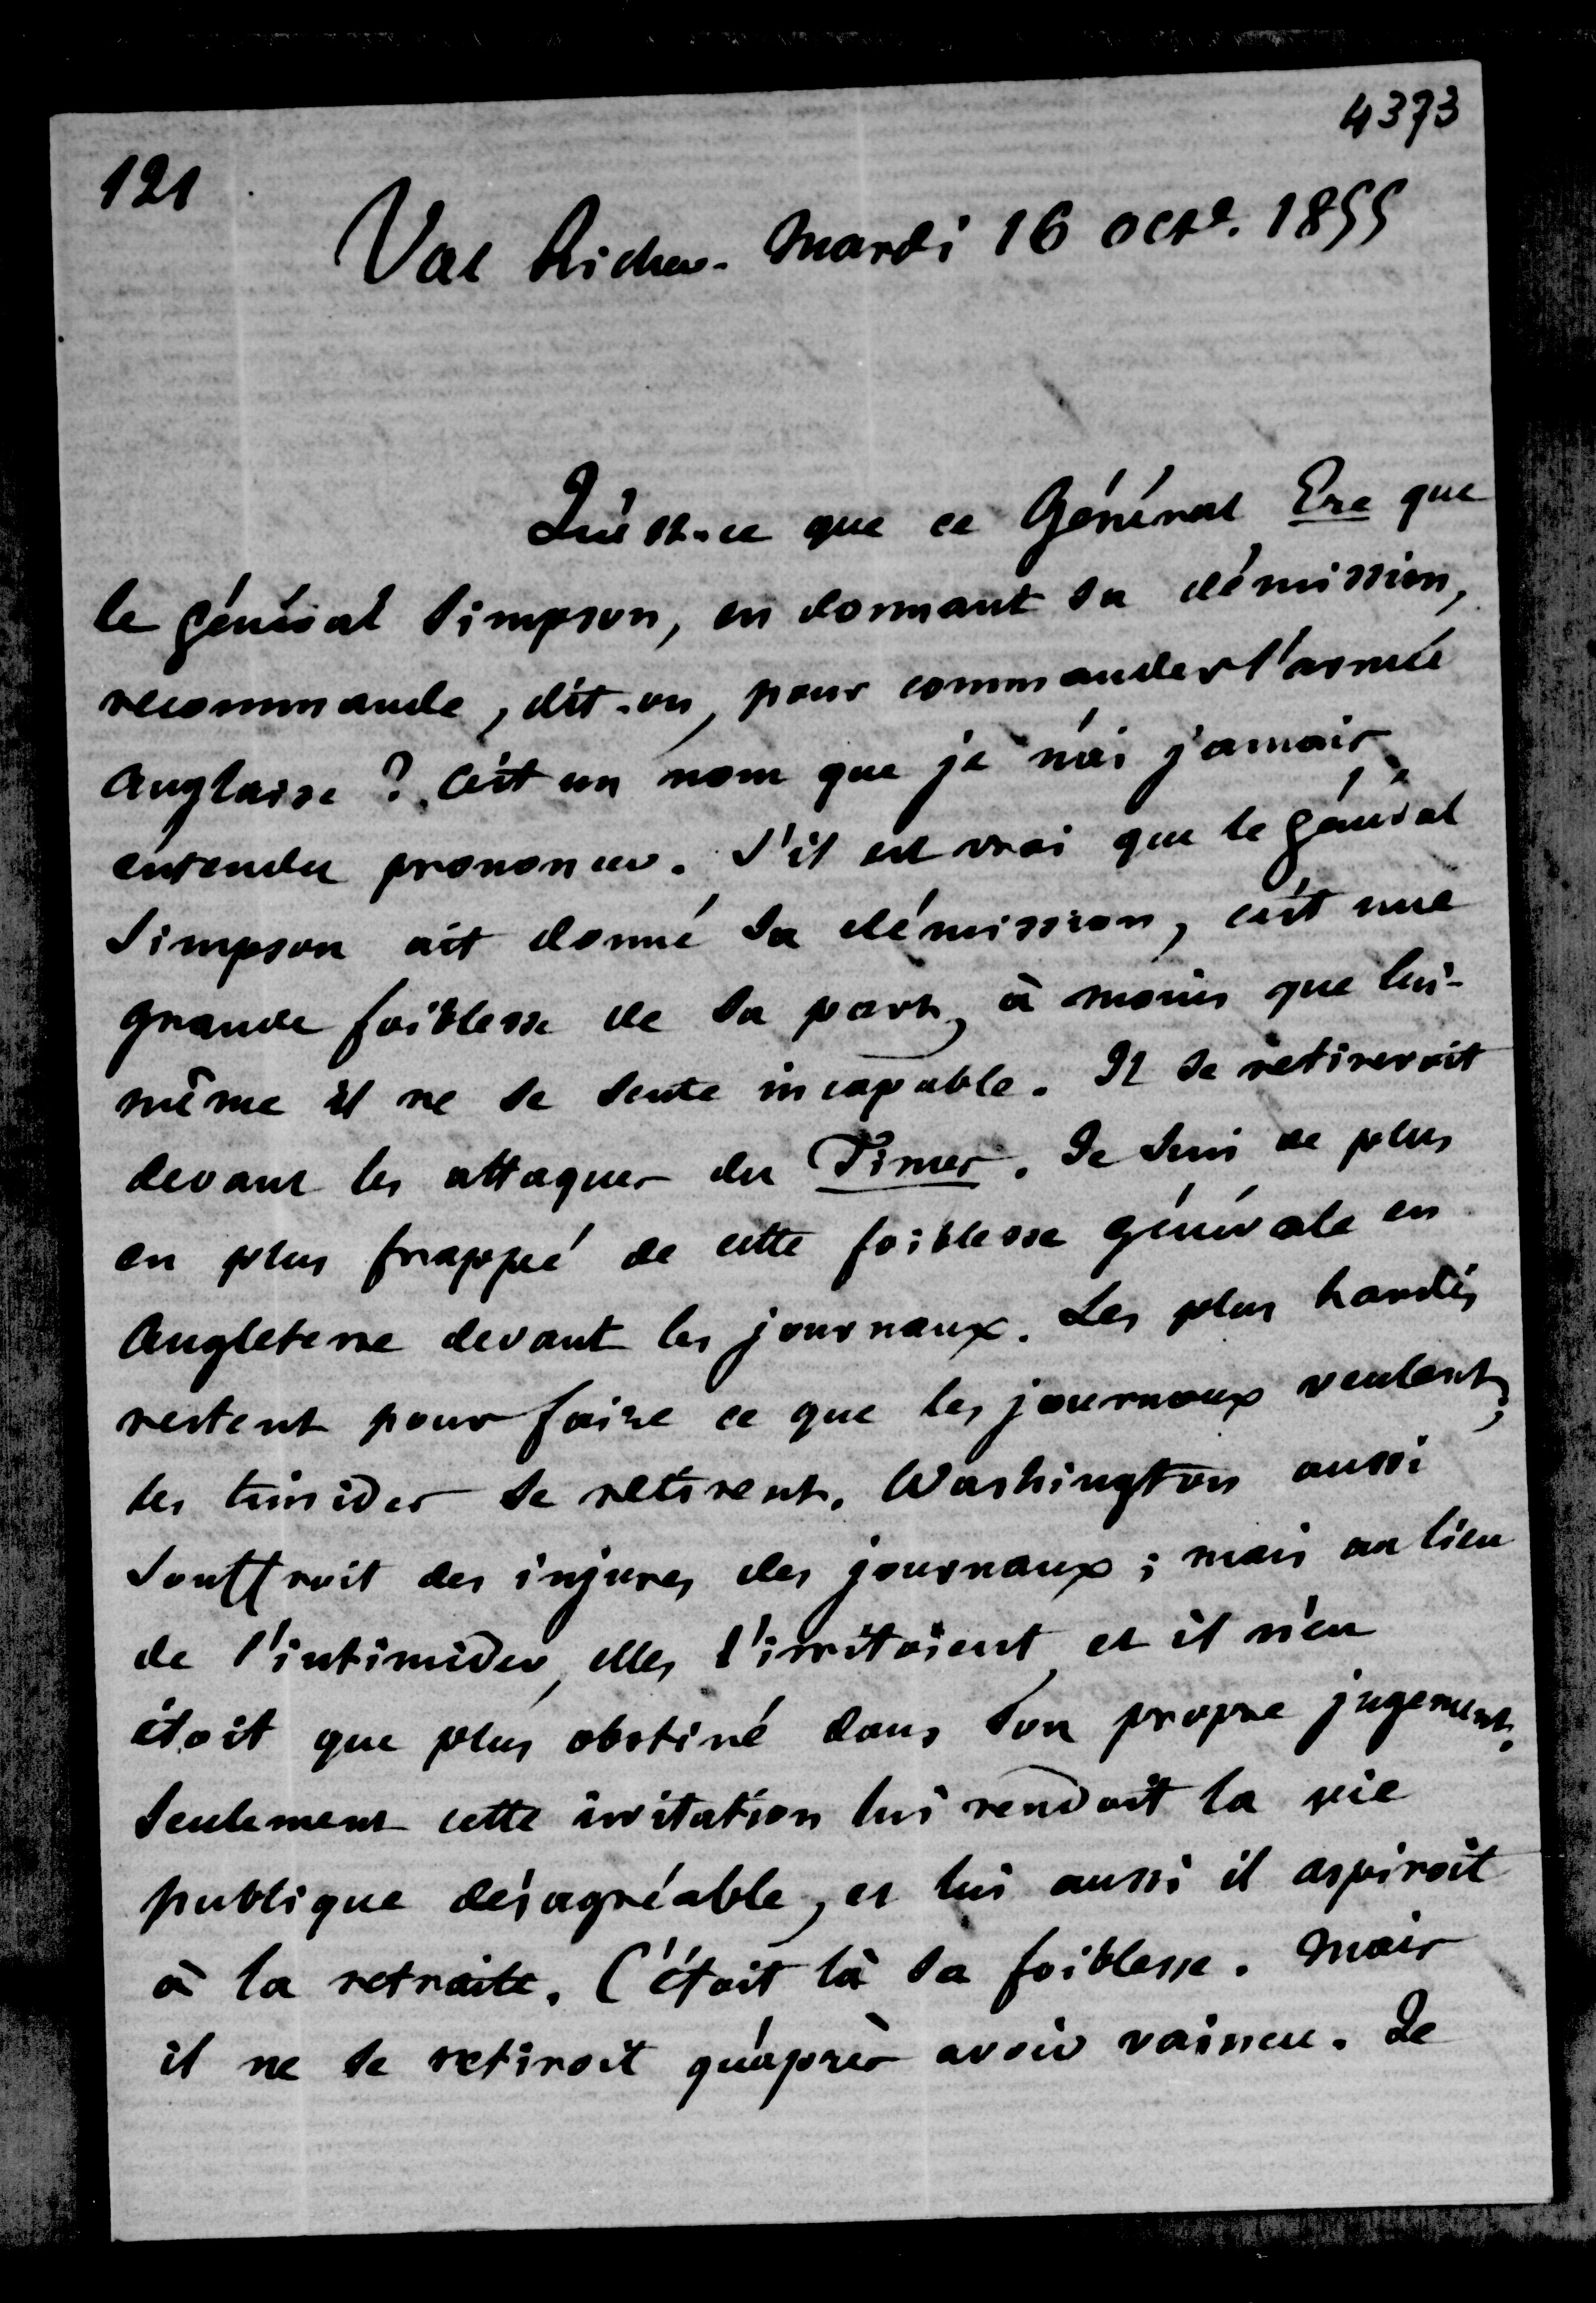 4373
121
Val Richer. Mardi 16 octe. 1855
Qu'est-ce que ce Général Ere que
le général Simpson, en donnant sa démission,
recommande, dit-on, pour commander l'armée
Anglaise ? C'est un nom que je n'ai jamais
entendu prononcer. S'il est vrai que le général
Simpson ait donné sa démission, c'est une
grande foiblesse de sa part, à moins que lui-
même il ne se sente incapable. Il se retireroit
devant les attaques du Times. Je suis de plus
en plus frappé de cette foiblesse générale en
Angleterre devant les journaux. Les plus hardis
restent pour faire ce que les journaux veulent ;
les timides se retirent. Washington aussi
souffroit des injures des journaux ; mais au lieu
de l'intimider, elles l'irritoient et il n'en
étoit que plus obstiné dans son propre jugement.
Seulement cette irritation lui rendoit la vie
publique désagréable, et lui aussi il aspiroit
à la retraite. C'étoit là sa foiblesse. Mais
il ne se retiroit qu'après avoir vaincu. Je